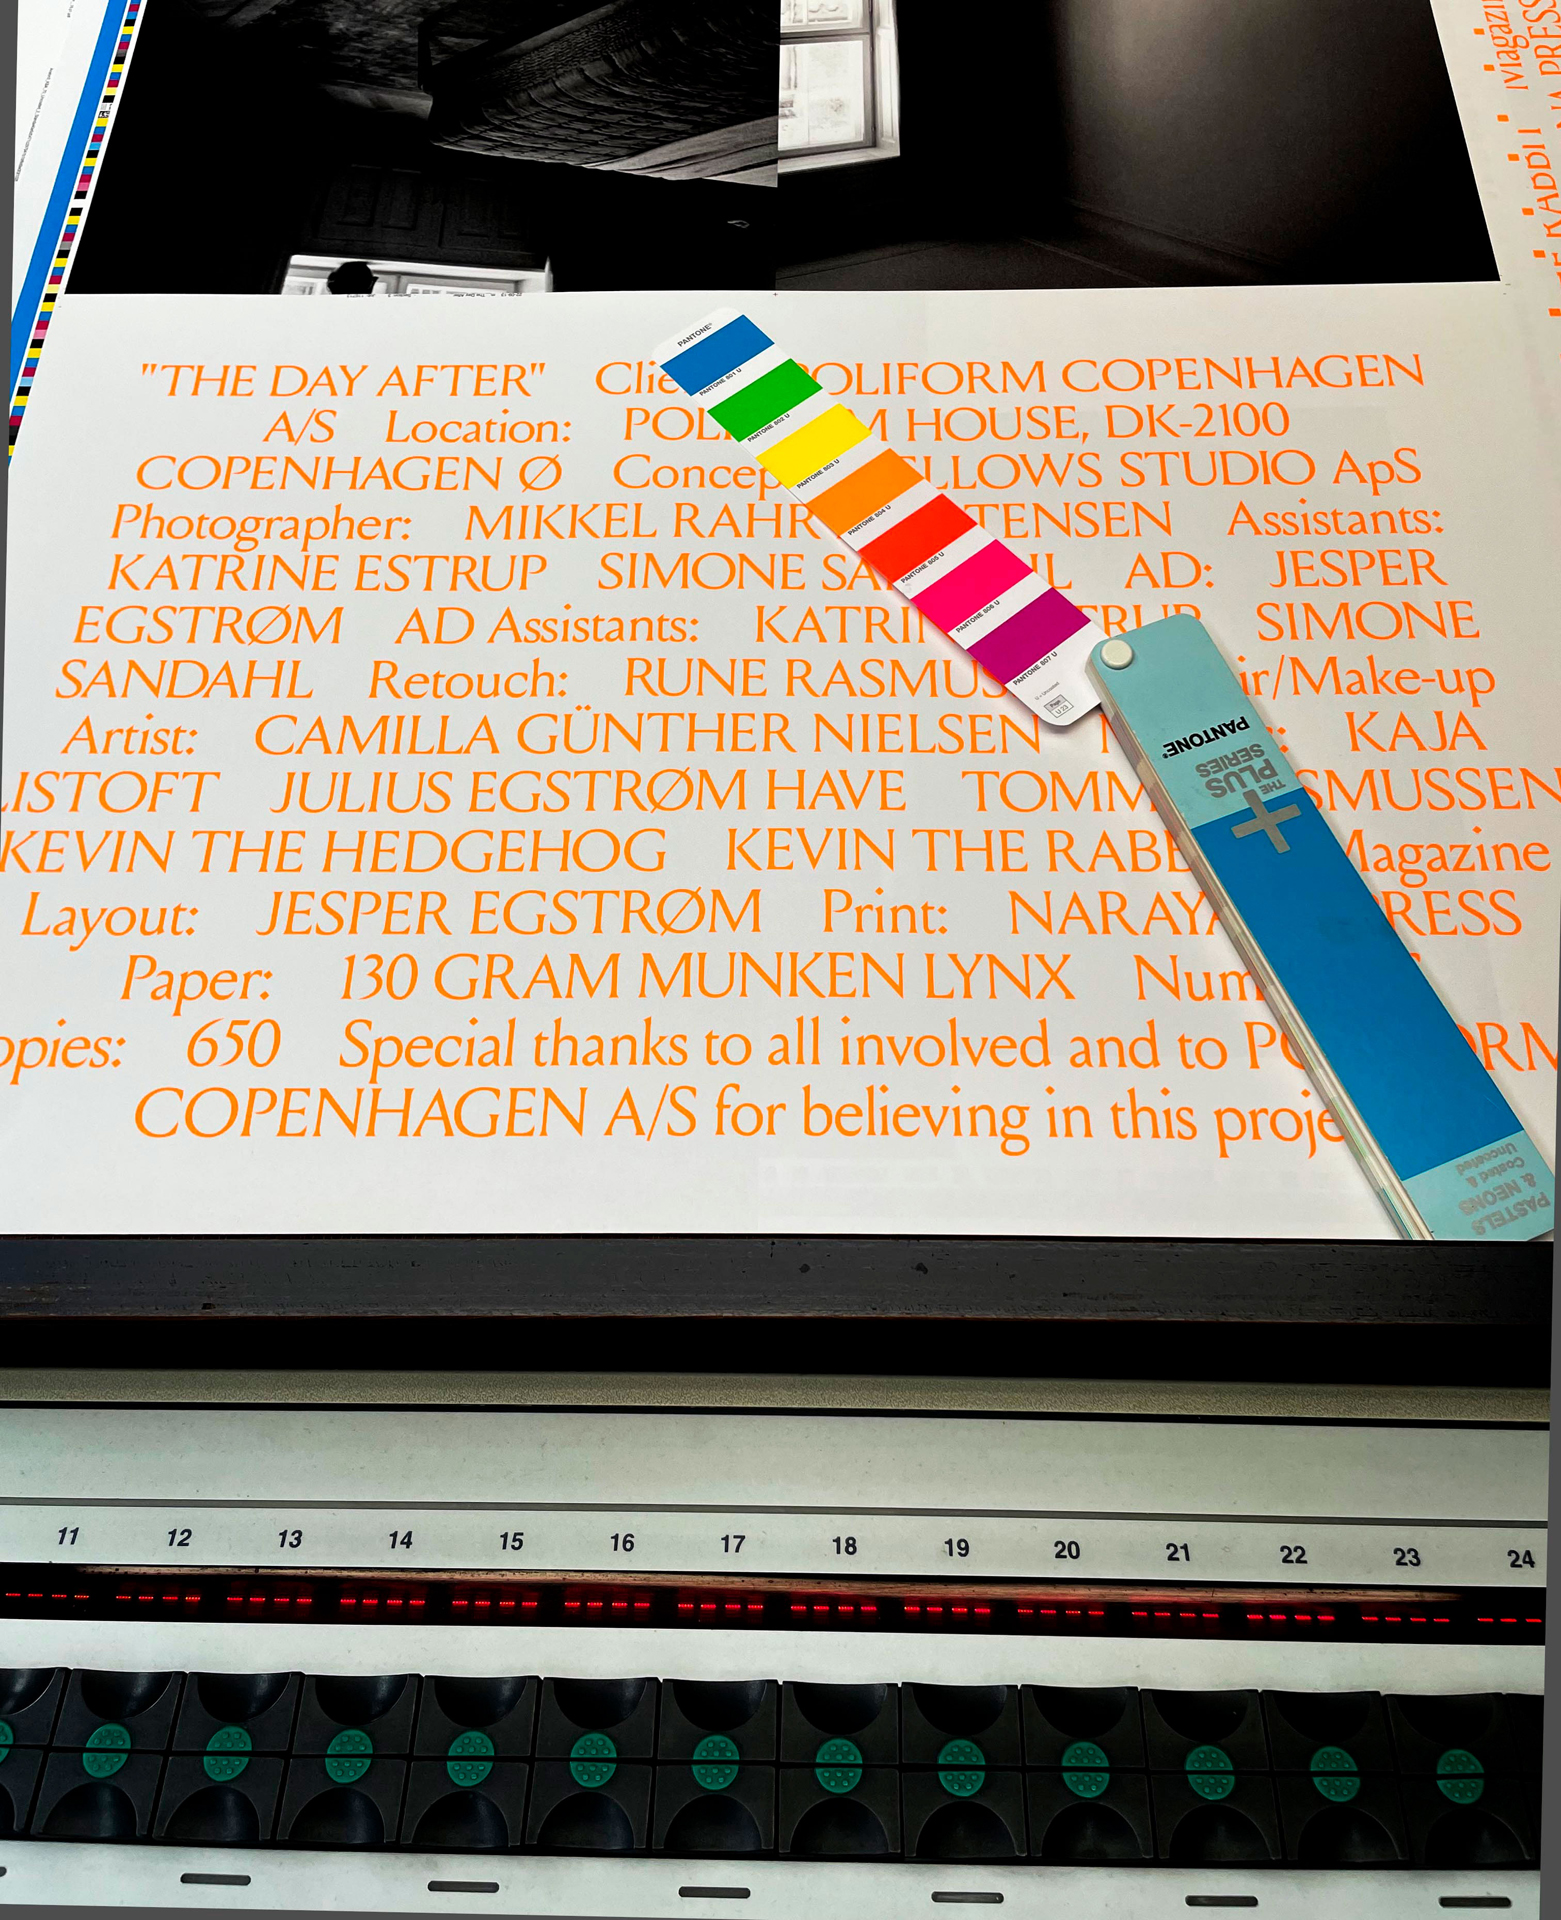 "THE DAY AFTER" Clie POLIFORM COPENHAGEN
A/S Location: POLI M HOUSE, DK-2100
COPENHAGEN Ø Concep ELLOWS STUDIO ApS
Photographer: MIKKEL RAHR TENSEN Assistants:
KATRINE ESTRUP SIMONE SA HL AD: JESPER
EGSTRØM AD Assistants: KATRIN TRUP SIMONE
SANDAHL Retouch: RUNE RASMUS ir/Make-up
Artist: CAMILLA GÜNTHER NIELSEN M : KAJA
LISTOFT JULIUS EGSTRØM HAVE TOMM SMUSSEN
KEVIN THE HEDGEHOG KEVIN THE RABB Magazine
Layout: JESPER EGSTRØM Print: NARAYA PRESS
Paper: 130 GRAM MUNKEN LYNX Num
opies: 650 Special thanks to all involved and to PO ORM
COPENHAGEN A/S for believing in this proje
PANTONE®
PANTONE 801 U
PANTONE 802 U
PANTONE 803 U
PANTONE 804 U
PANTONE 805 U
PANTONE 806 U
PANTONE 807 U
U = Uncoated
Page
U 23
PANTONE®
THE
PLUS
SERIES
PASTELS
& NEONS
Coated &
Uncoated
Magazin
PRESS
11 12 13 14 15 16 17 18 19 20 21 22 23 24